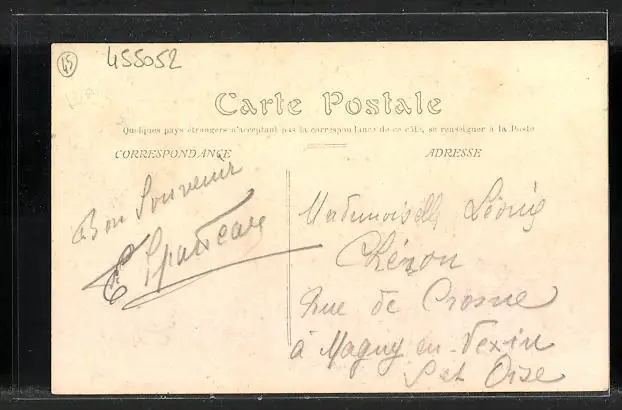 45
455052
Carte Postale
Quelques pays étrangers n'acceptant pas la correspondance de ce côté, se renseigner à la Poste
CORRESPONDANCE
ADRESSE
Bon Souvenir
Mademoiselle Léonie
Chéron
Rue de Crosne
à Magny en-Vexin
S et Oise